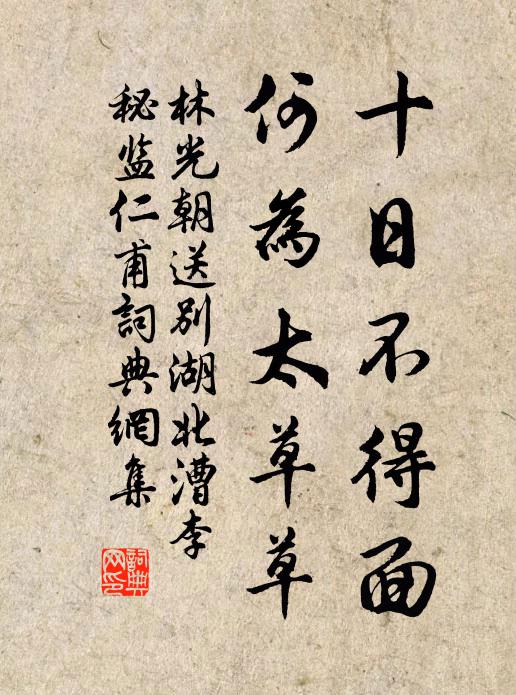 十日不得面
何為太草草
林光朝送別湖北漕李
秘监仁甫詞典網集
詞典
网印